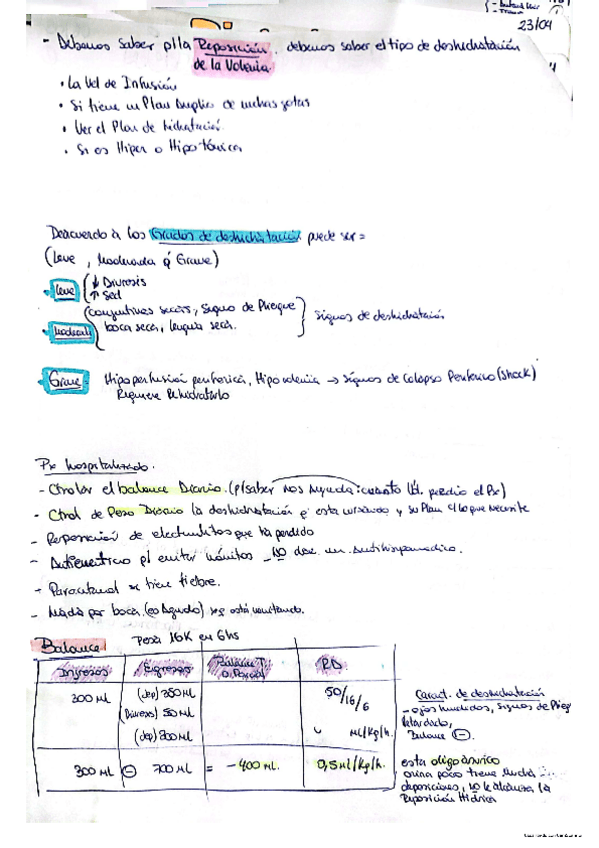 23/04
- Debemos saber p/la Reposición, debemos saber el tipo de deshidratación
de la Volemia
• La Vel de Infusión
• Si tiene un Plan Amplio de muchas gotas
• Ver el Plan de hidratación
• Si es Hiper o Hipotónica
Deacuerdo a los Grados de deshidratación puede ser =
(Leve, Moderada o Grave)
• Leve ↓ Diuresis
↑ Sed
(conjuntivas secas, Signo de Pliegue
• Moderada boca seca, lengua seca. signos de deshidratación
• Grave Hipoperfusión periferica, Hipovolemia → signos de Colapso Periferico (Shock)
Requiere Rehidratarlo
Px hospitalizado.
- Ctrolar el balance Diario. (p/saber nos ayuda: cuanto líq. perdio el Px)
- Ctrol de Peso Diario la deshidratación q' esta cursando y su Plan lo que necesite
- Reposición de electrolitos que ha perdido
- Antiemetico p/ evitar vómitos _ NO dar un Antiespasmodico.
- Paracetamol si tiene fiebre.
- Nada por boca. (es Agudo) está vomitando.
Balance Pesa 16K en 6hs
Ingresos Egresos Balance T. o Parcial R.D
300 ML (dep) 350 ML 50/16/6
(Diuresis) 50 ML
(dep) 300 ML ML/Kg/h.
300 ML ⊖ 700 ML = -400 ML. 0,5 ML/Kg/h.
Caract. de deshidratación
- ojos hundidos, signos de Plieg
Retardado,
Balance ⊖.
esta oligoanurico
orina poco tiene mucha
deposiciones, no le alcanza la
Reposición Hidrica